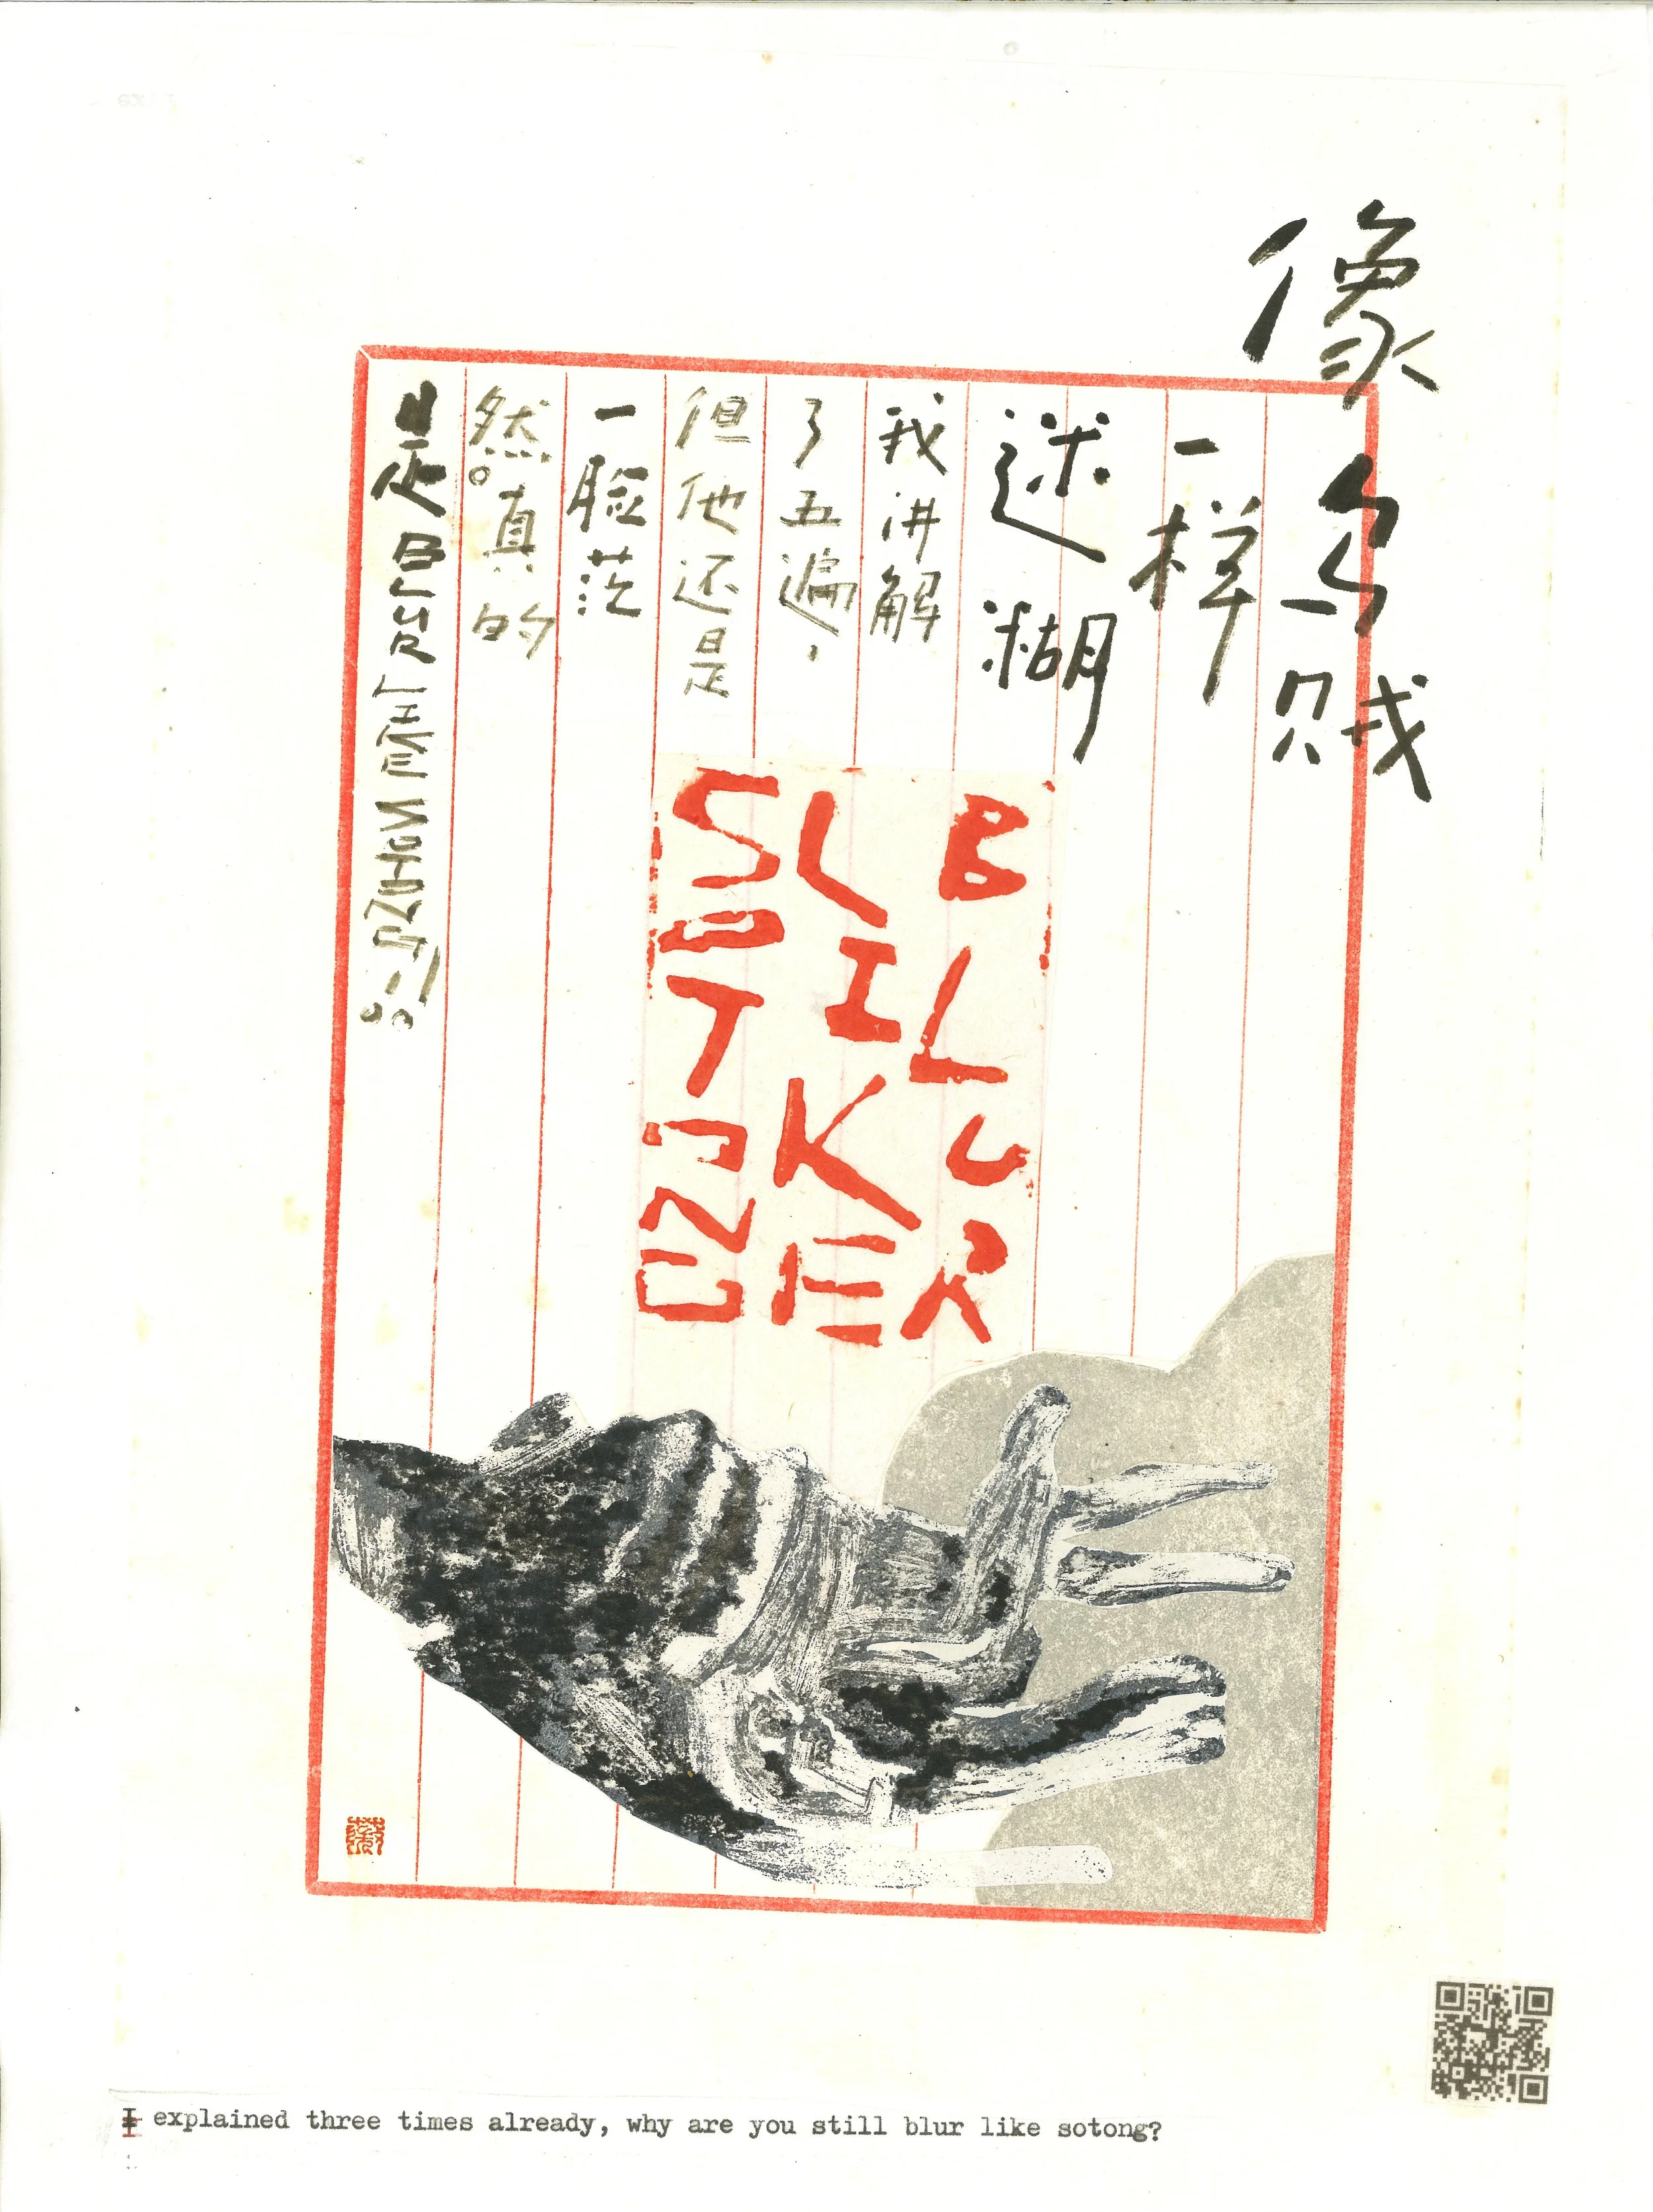 像乌贼
一样
迷糊
我讲解
了五遍，
但他还是
一脸茫
然。真的
是BLUR LIKE SOTONG!!
BLUR
LIKE
SOTONG
I explained three times already, why are you still blur like sotong?